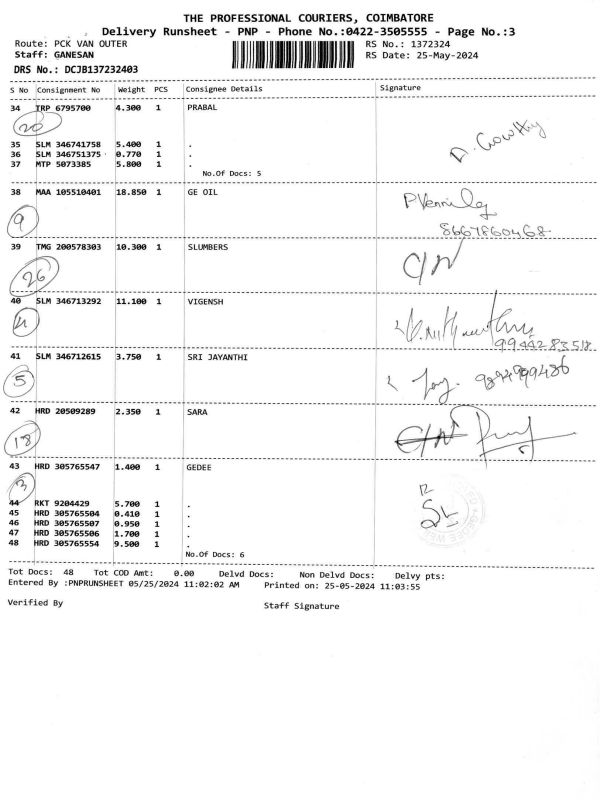 THE PROFESSIONAL COURIERS, COIMBATORE
Delivery Runsheet - PNP - Phone No.:0422-3505555 - Page No.:3
Route: PCK VAN OUTER RS No.: 1372324
Staff: GANESAN RS Date: 25-May-2024
DRS No.: DCJB137232403
S No Consignment No Weight PCS Consignee Details Signature
34 TRP 6795700 4.300 1 PRABAL
20
35 SLM 346741758 5.400 1 .
36 SLM 346751375 0.770 1 .
37 MTP 5073385 5.800 1 .
No.Of Docs: 5
38 MAA 105510401 18.850 1 GE OIL
9 8667860468
39 TMG 200578303 10.300 1 SLUMBERS
26 C/N
40 SLM 346713292 11.100 1 VIGENSH
4 9944283518
41 SLM 346712615 3.750 1 SRI JAYANTHI
5
42 HRD 20509289 2.350 1 SARA
18 C/N
43 HRD 305765547 1.400 1 GEDEE
3
44 RKT 9204429 5.700 1 .
45 HRD 305765504 0.410 1 .
46 HRD 305765507 0.950 1 .
47 HRD 305765506 1.700 1 .
48 HRD 305765554 9.500 1 .
No.Of Docs: 6
Tot Docs: 48 Tot COD Amt: 0.00 Delvd Docs: Non Delvd Docs: Delvy pts:
Entered By :PNPRUNSHEET 05/25/2024 11:02:02 AM Printed on: 25-05-2024 11:03:55
Verified By Staff Signature